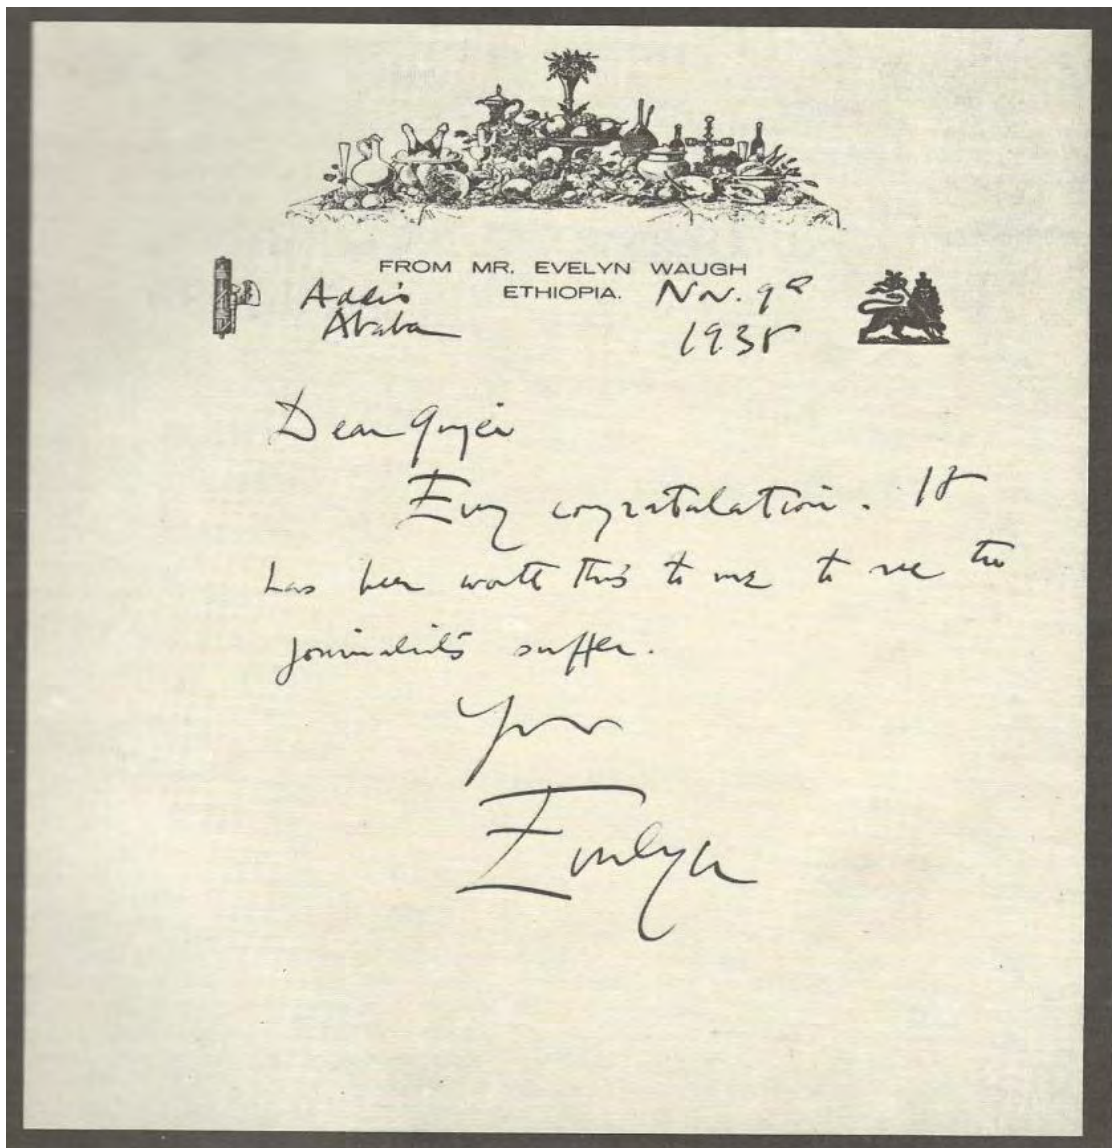 FROM MR. EVELYN WAUGH
ETHIOPIA.
Addis
Ababa
Nov. 9th
1935
Dear
Every congratulation. It
has been worth this to me to see the
journalists suffer.
Yours
Evelyn